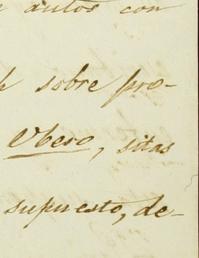 autos con
sobre pro-
Obeso, sitas
supuesto, de-